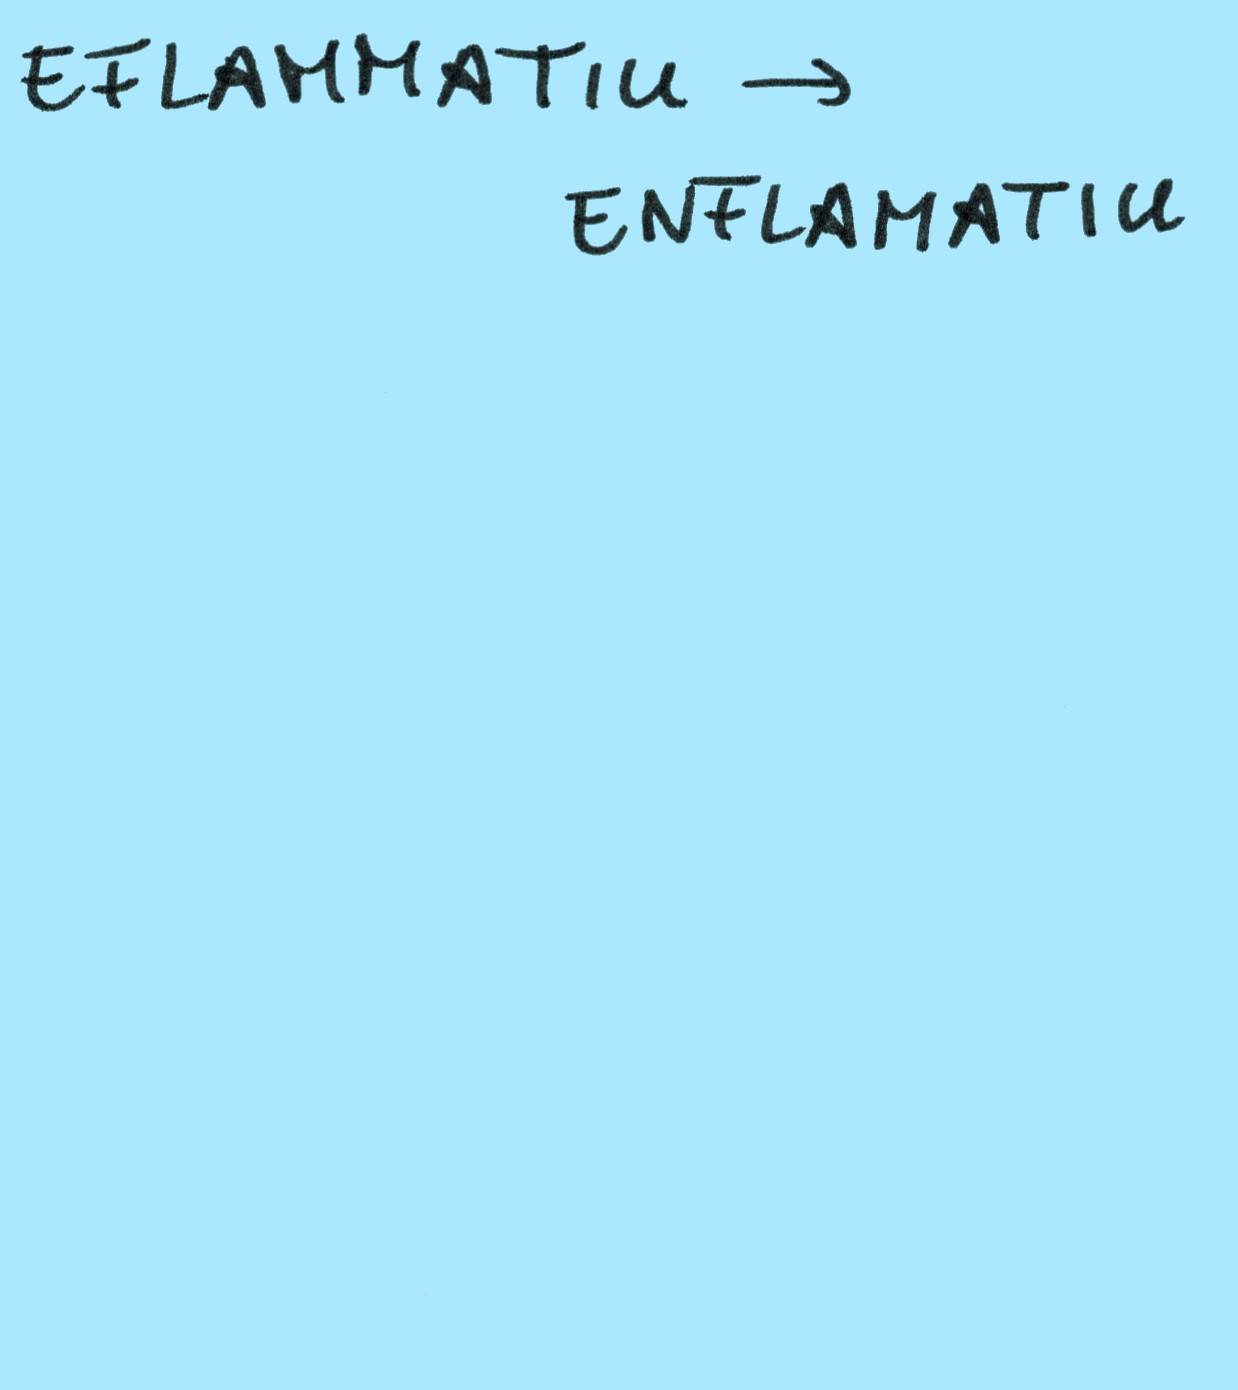 EFLAMMATIU →
ENFLAMATIU